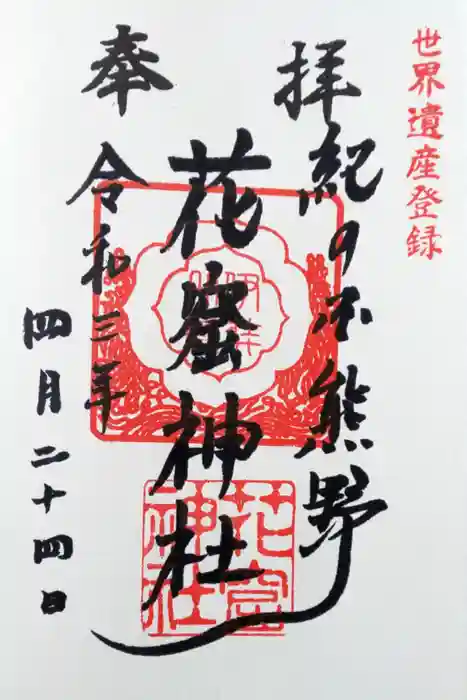 世界遺産登録
奉拝
紀の熊野
花窟神社
令和三年
四月二十四日
花窟神社